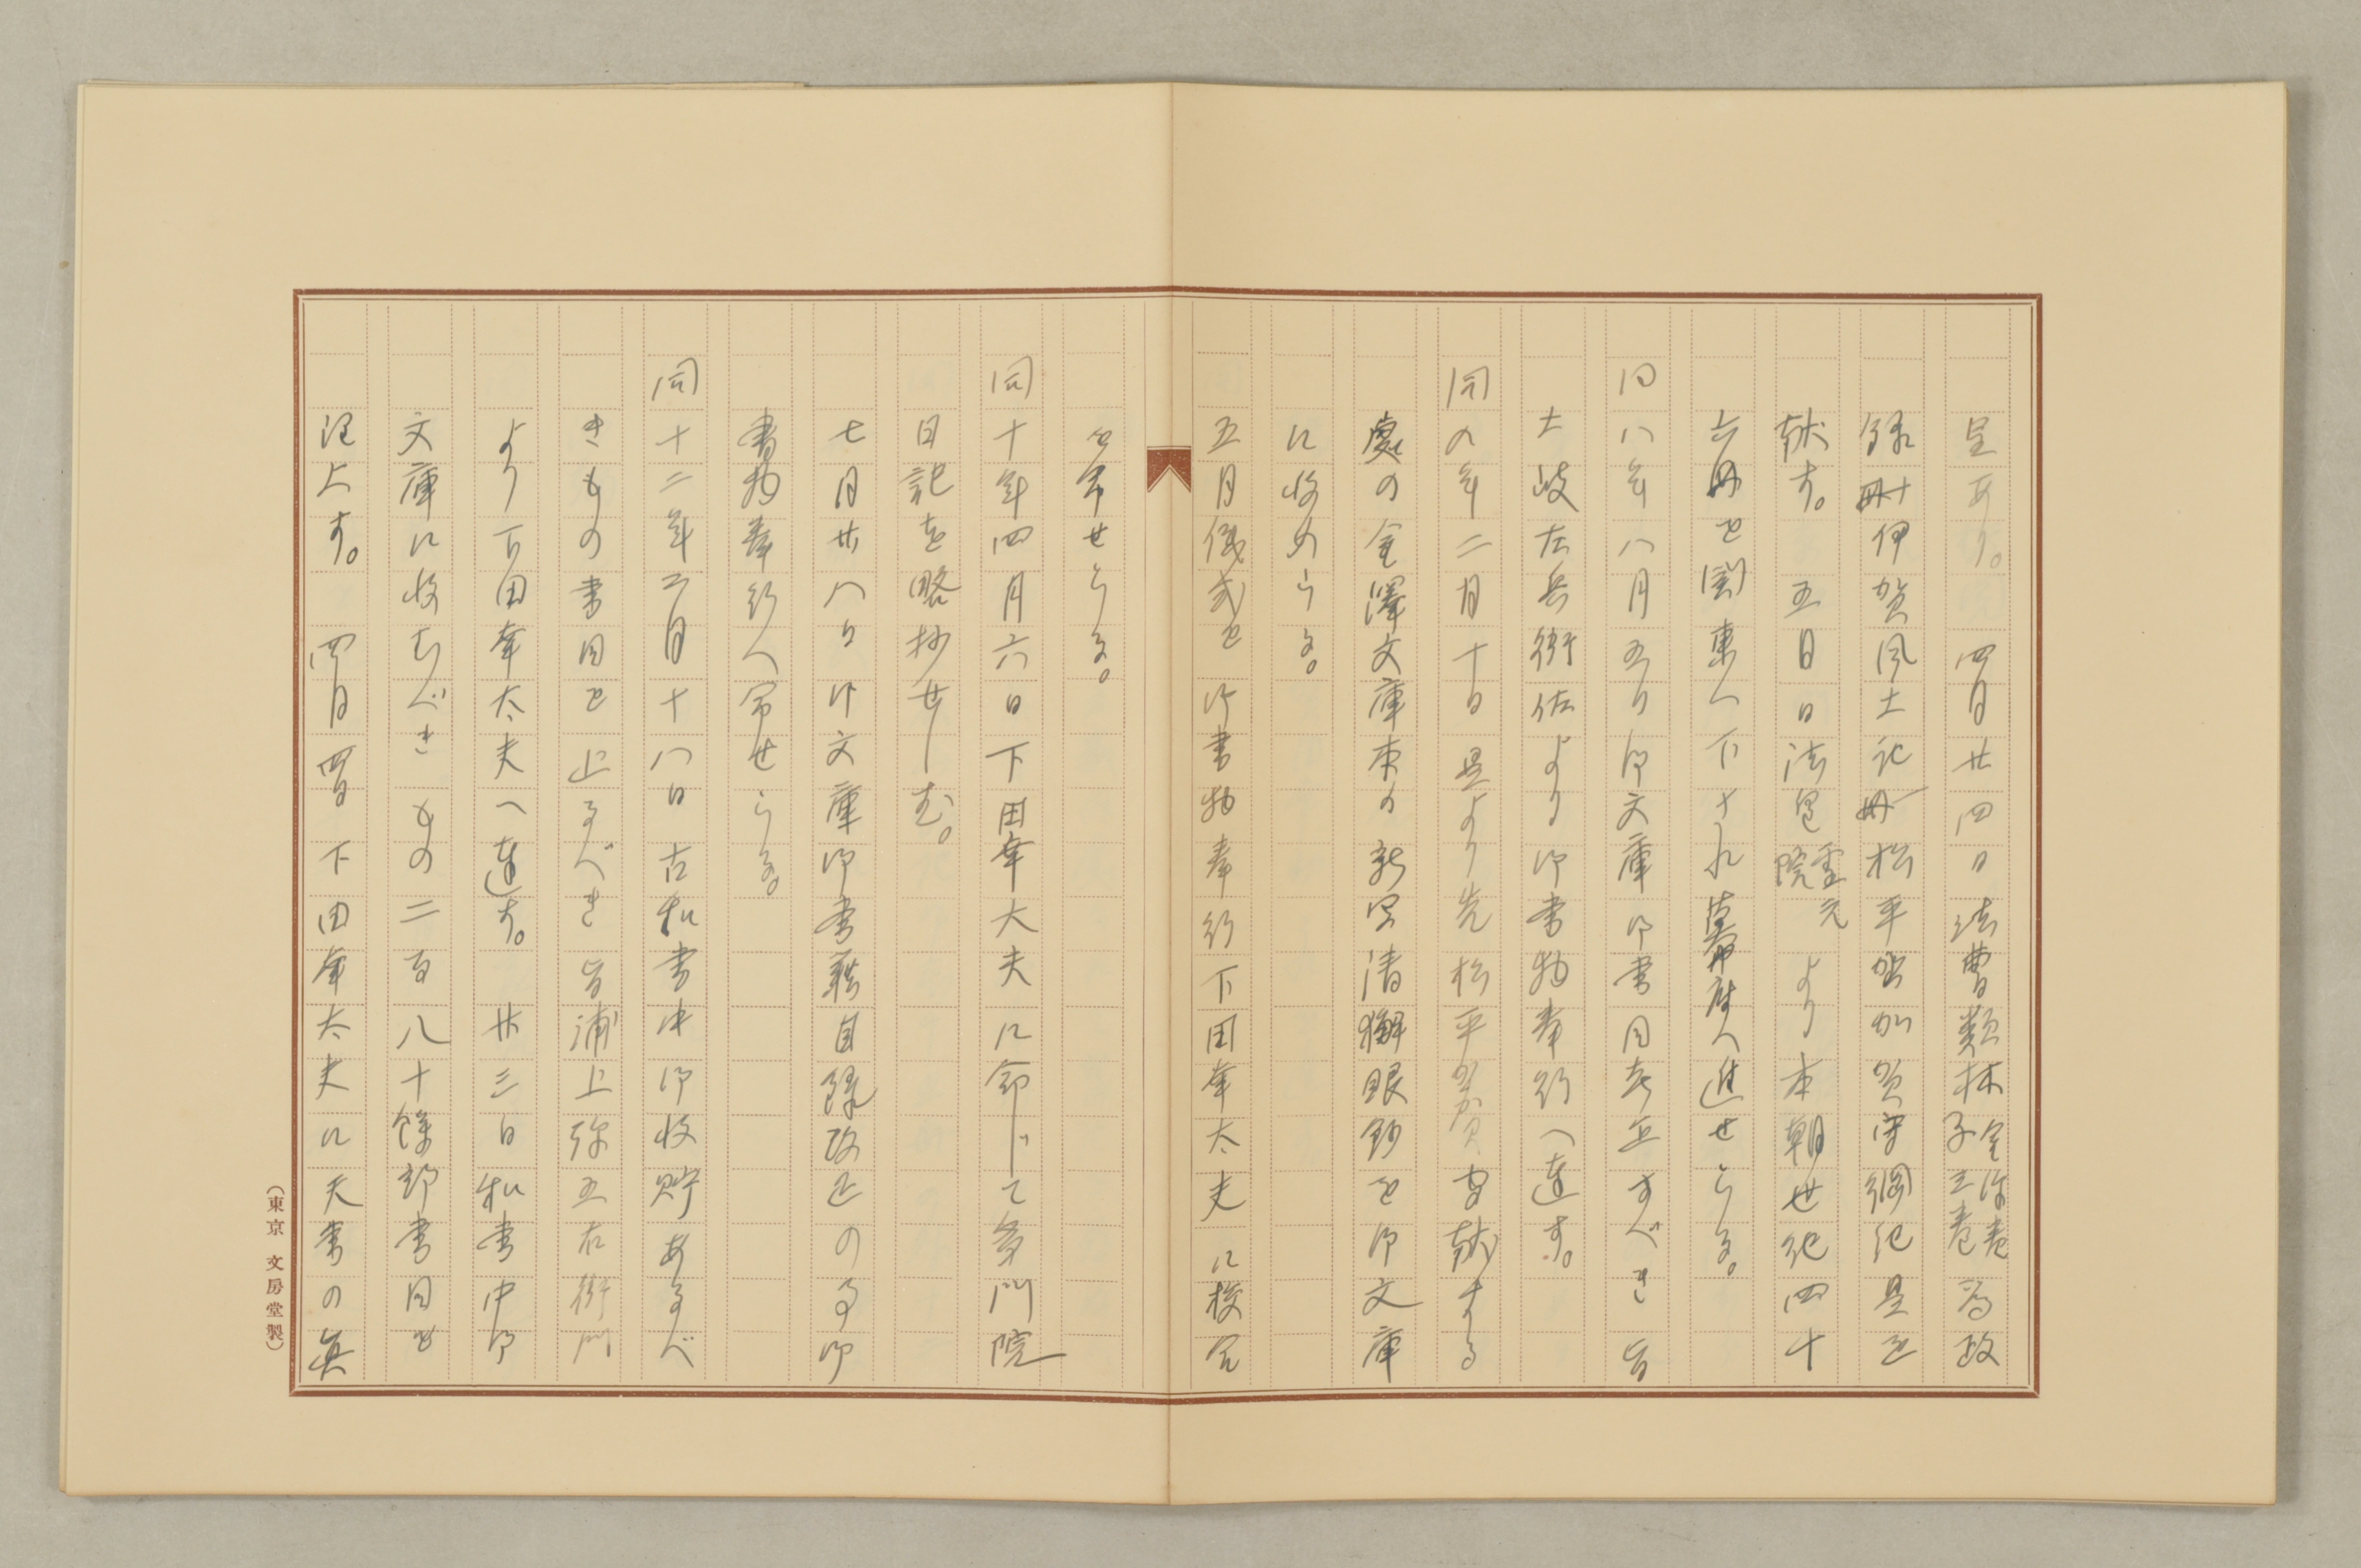 呈あり。　四月廿四日法曹類林全弥巻子三巻為政
録册十伊賀風土記册一松平加賀守綱紀是を
献す。　五日日法皇霊元院より本朝世紀四十
六册を関東へ下され幕府へ進せらる。
同八年八月五日御文庫御書目吟正すべき旨
土岐左兵衛佐より御書物奉行へ達す。
同九年二月十日是より先松平加賀守献する
處の金澤文庫本の新写清獬眼鈔を御文庫
に收めらる。
五月儀式を御書物奉行下田幸大夫に校合
を命せらる。
同十年四月六日下田幸大夫に命じて多門院
日記を略抄せしむ。
七月廿八日御文庫御書籍目録改正の事御
書物奉行へ命せらる。
同十二年二月十八日古私書中御收貯あるべ
きもの書目を上るべき旨浦上弥五右衛門
より下田幸大夫へ達す。　廿三日私書中御
文庫に收むべきもの二百八十餘部書目を
注上す。　四月四日下田幸大夫に夫書の真
（東京 文房堂製）